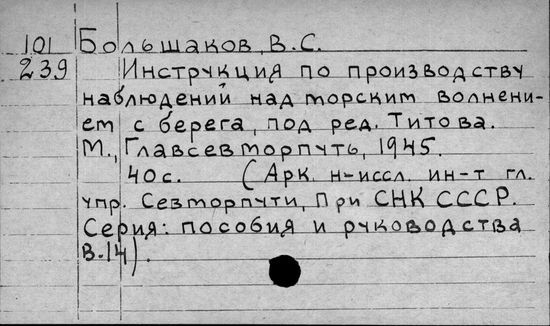 101 Большаков, В.С.
239 Инструкция по производству
наблюдений над морским волнени-
ем с берега, под ред. Титова.
М., Главсевморпуть, 1945.
40с. (Арк. н-иссл. ин-т гл.
упр. Севморпути, При СНК СССР.
Серия: пособия и руководства
В.14).